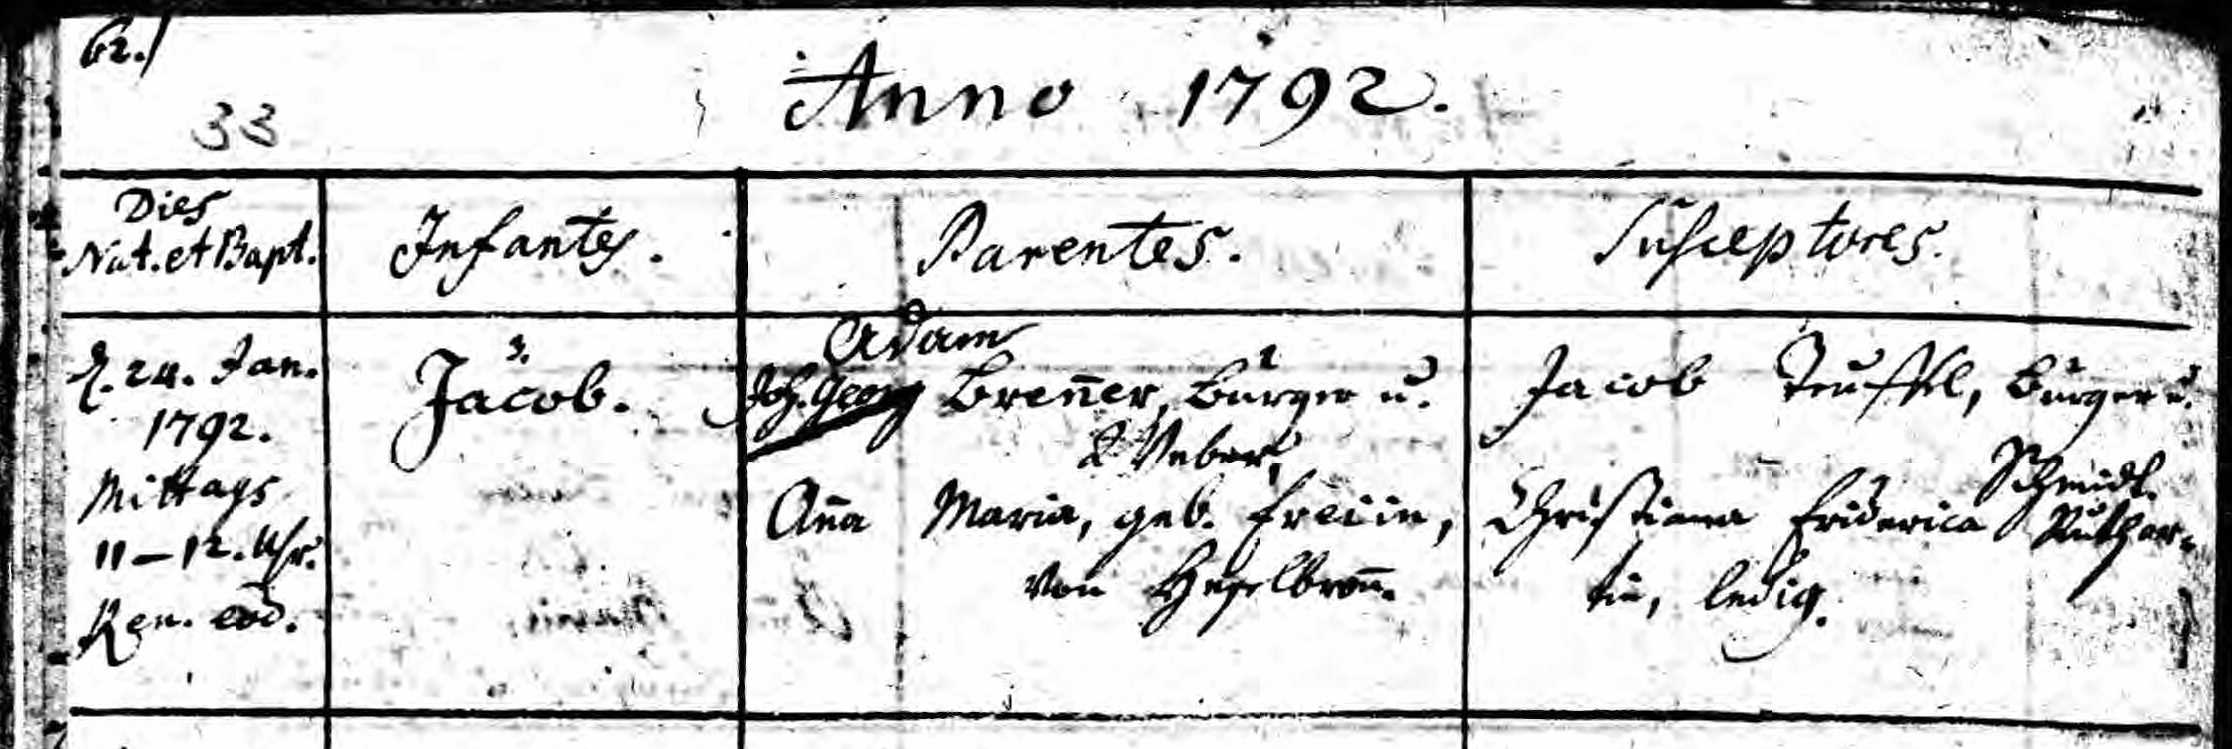 62.
33
Anno 1792.
Dies
Nat. et Bapt.
Infantes.
Parentes.
Susceptores.
d. 24. Jan.
1792.
Mittags
11–12. Uhr.
Ren. eod.
3.
Jacob.
Adam
Joh. Georg Breñer, Burger u.
Weber,
Aña Maria, geb. Freiin,
von Heselbroñ.
Jacob Teuffel, Burger u.
Schmidt.
Christiana Friderica
tin, ledig.